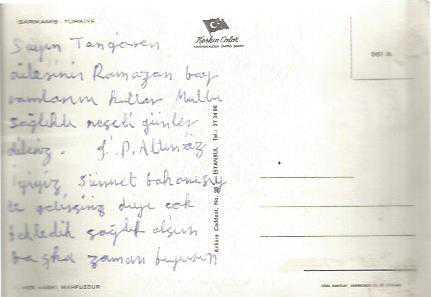 SARIKAMIŞ - TÜRKİYE
Keskin Color
Sayın Tangören
ailesinin Ramazan bay
ramlarını kutlar Mutlu
sağlıklı neşeli günler
dileriz.
İyiyiz, Sünnet bahanesiy
le gelirsiniz diye çok
bekledik sağlık olsun
başka zaman buyurun
Ankara Caddesi, No. İSTANBUL Tel.:
HER HAKKI MAHFUZDUR